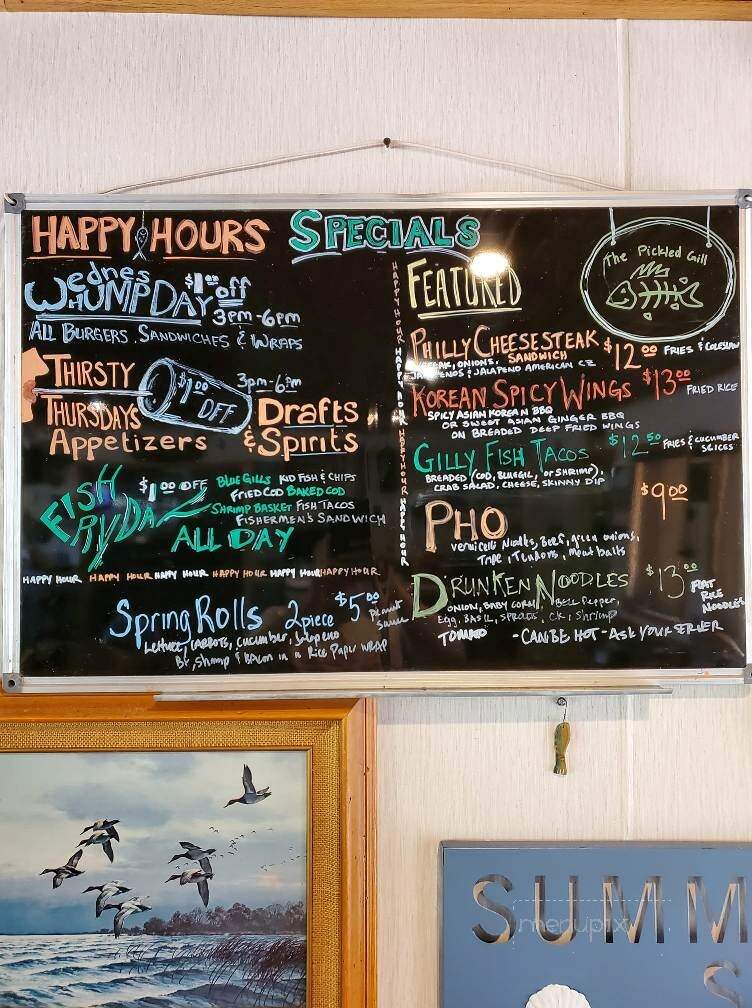 HAPPY HOURS SPECIALS
Wednes $1.00 off
HUMPDAY 3pm-6pm
ALL BURGERS, SANDWICHES & WRAPS
THIRSTY $1.00 OFF 3pm-6pm
THURSDAYS Drafts
Appetizers & Spirits
FISH FRYDAZ
$1.00 OFF BLUE GILLS KID FISH & CHIPS
FRIED COD BAKED COD
SHRIMP BASKET FISH TACOS
FISHERMEN'S SANDWICH
ALL DAY
HAPPY HOUR HAPPY HOUR HAPPY HOUR HAPPY HOUR HAPPY HOUR HAPPY HOUR
Spring Rolls 2 piece $5.00 Peanut Sauce
Lettuce, CARROTS, CUCUMBER, Jalapeno
Shrimp & BACON in a Rice Paper WRAP
HAPPY HOUR HAPPY HOUR HAPPY HOUR HAPPY HOUR
FEATURED
The Pickled Gill
PHILLY CHEESESTEAK $12.00 FRIES & COLESLAW
STEAK, ONIONS, SANDWICH
JALAPENOS & JALAPENO AMERICAN CZ
KOREAN SPICY WINGS $13.00 FRIED RICE
SPICY ASIAN KOREAN BBQ
OR SWEET ASIAN GINGER BBQ
ON BREADED DEEP FRIED WINGS
GILLY FISH TACOS $12.50 FRIES & CUCUMBER SLICES
BREADED (COD, BLUEGILL, or SHRIMP),
CRAB SALAD, CHEESE, SKINNY DIP
PHO $9.00
vermicelli Noodles, Beef, green onions,
Tripe, Tendons, meat balls
DRUNKEN NOODLES $13.00 FLAT RICE NOODLES
ONION, BABY CORN, BELL Pepper,
Egg, BASIL, SPROUTS, CK, Shrimp
TOMATO - CAN BE HOT - ASK YOUR SERVER
SUMM
S
menupix